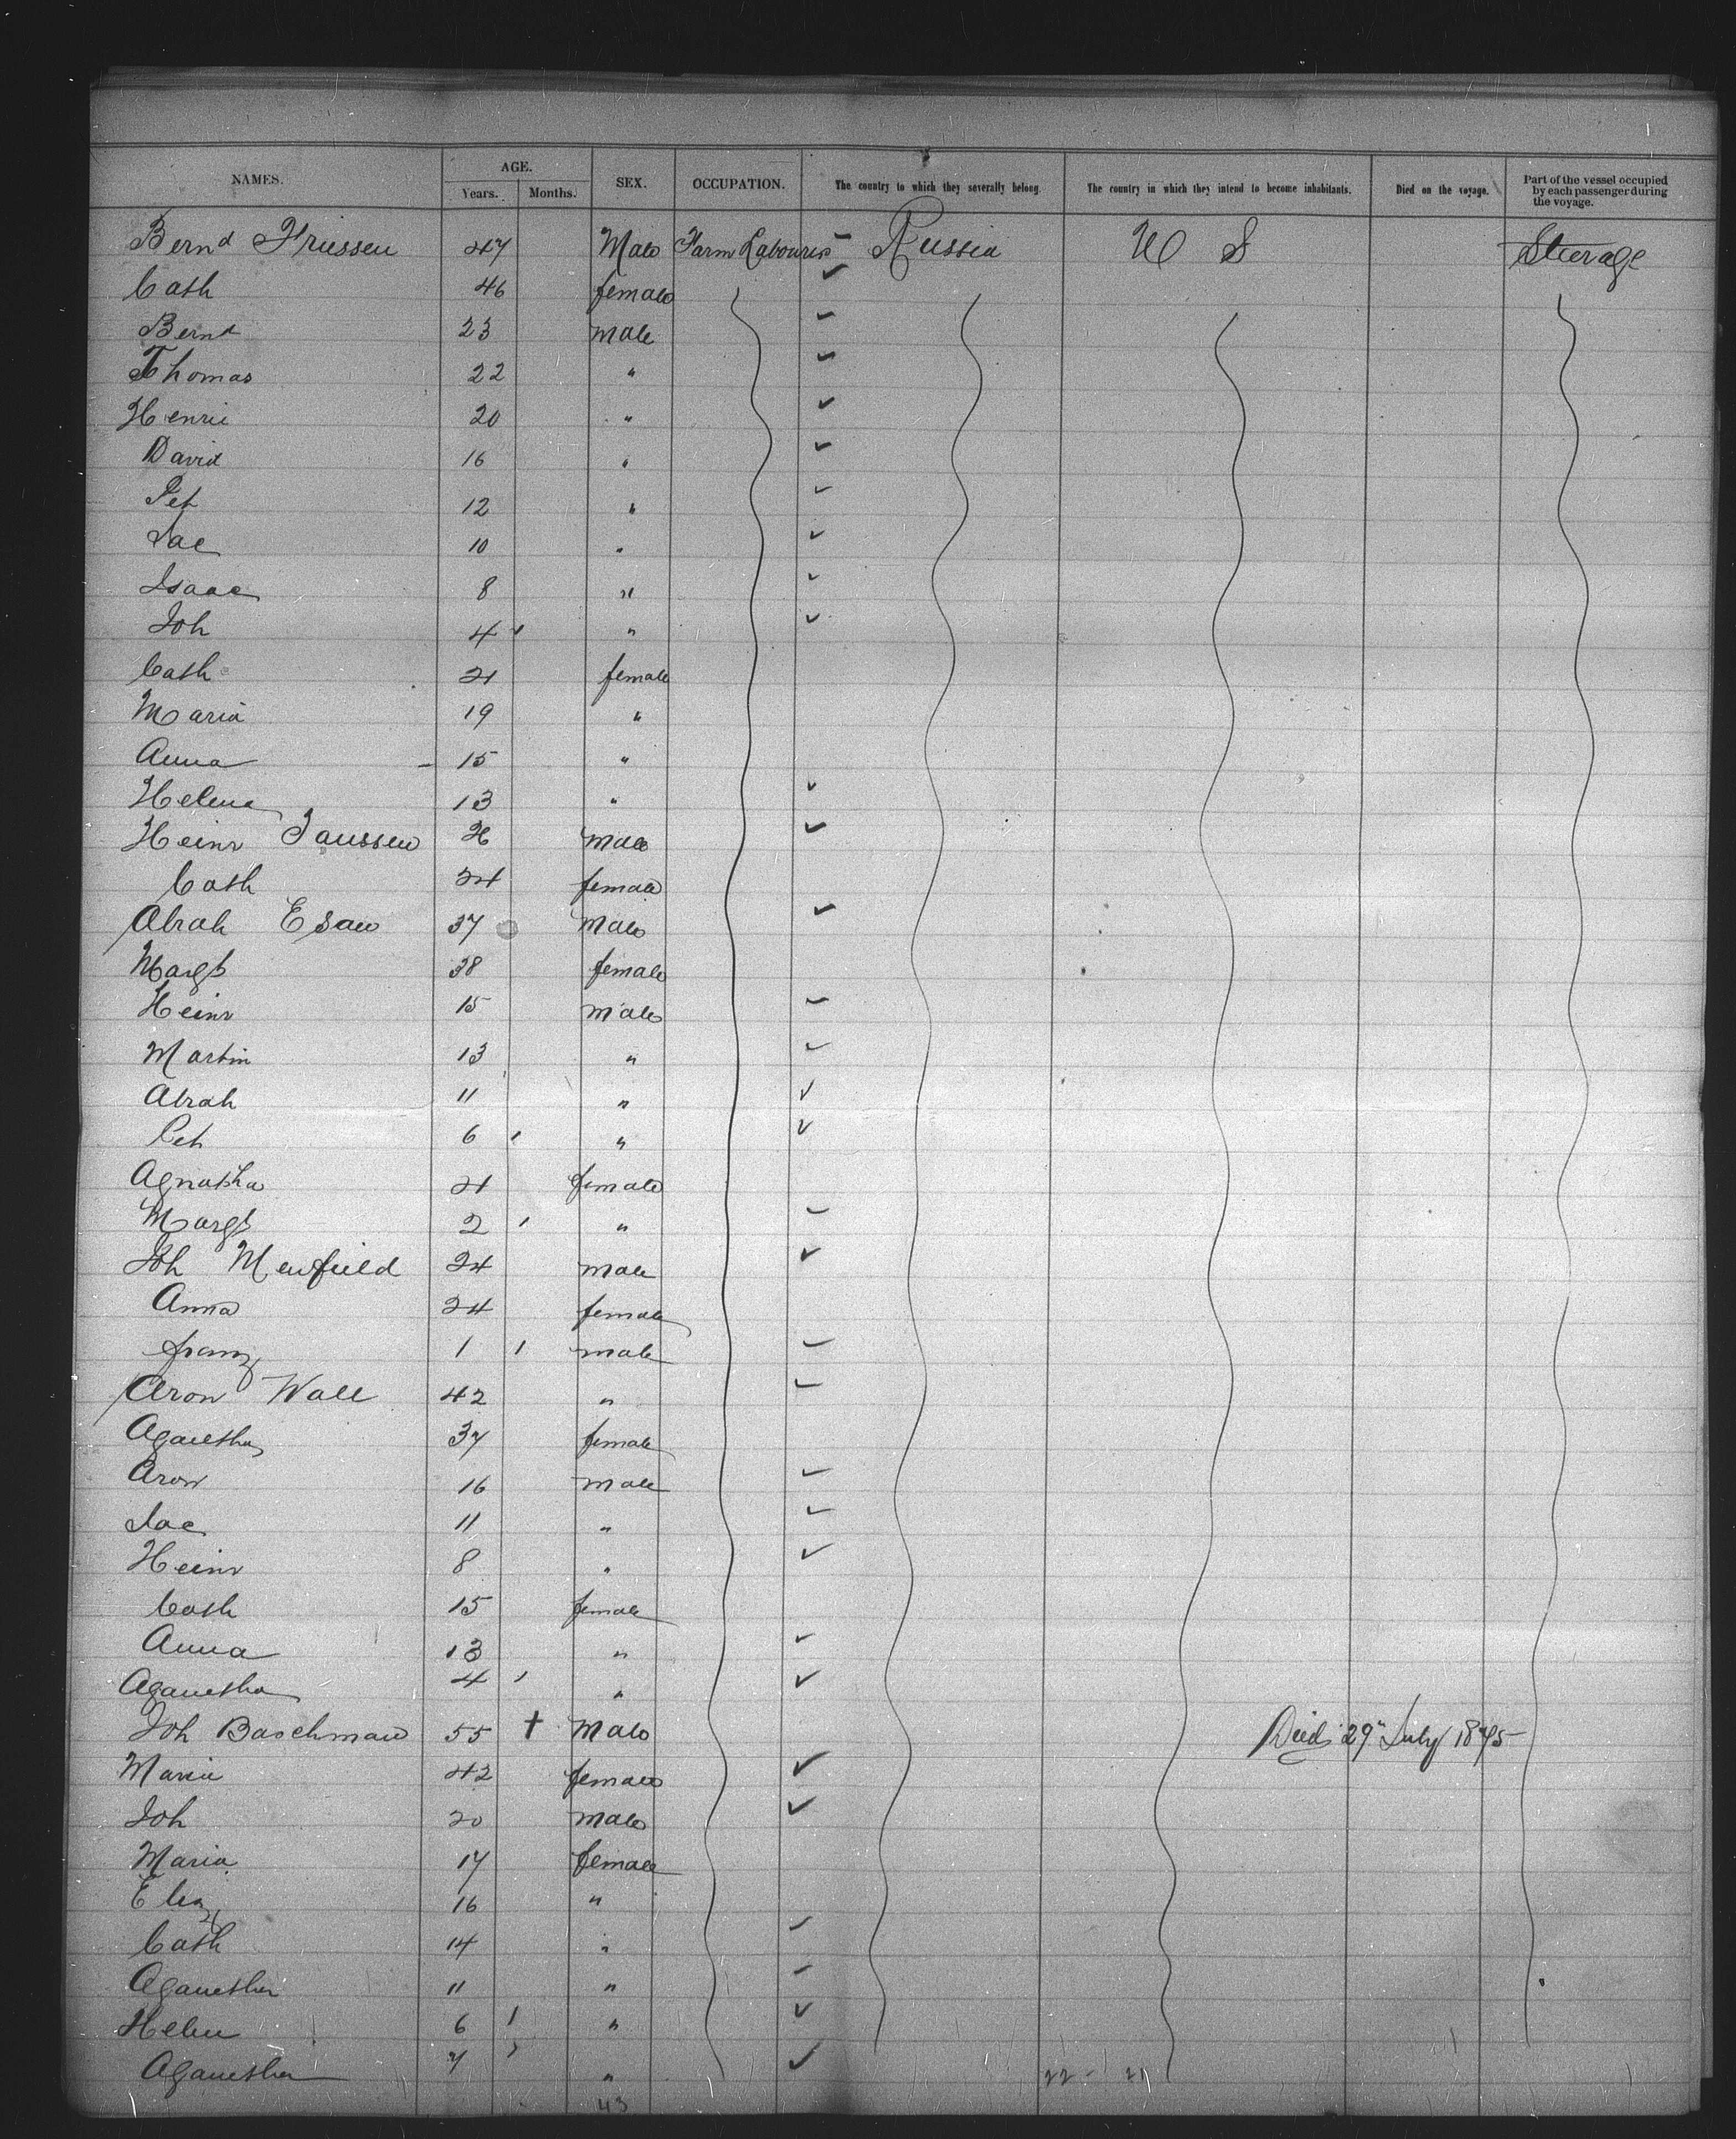 NAMES. AGE. Years. Months. SEX. OCCUPATION. The country to which they severally belong. The country in which they intend to become inhabitants. Died on the voyage. Part of the vessel occupied by each passenger during the voyage.
Bernd Friessen 47 Male Farm Labourers Russia U S Steerage
Cath 46 female
Bernd 23 male
Thomas 22 "
Henri 20 "
David 16 "
Pet 12 "
Jac 10 "
Isaac 8 "
Joh 4 "
Cath 21 female
Maria 19 "
Anna 15 "
Helena 13 "
Heinr Janssen 26 male
Cath 24 female
Abrah Esau 37 Male
Margt 38 female
Heinr 15 male
Martin 13 "
Abrah 11 "
Pet 6 "
Agnatha 21 female
Margt 2 "
Joh 24 male
Anna 24 female
franz 1 male
Aron Wall 42 "
Aganetha 37 female
Aron 16 male
Jac 11 "
Heinr 8 "
Cath 15 female
Anna 13 "
Aganetha 4 "
Joh Baschman 55 † Male Died 29" July 1875
Maria 42 female
Joh 20 male
Maria 17 female
Eliz 16 "
Cath 14 "
Aganetha 11 "
Helen 6 "
Aganetha 7 "
22 - 21
43